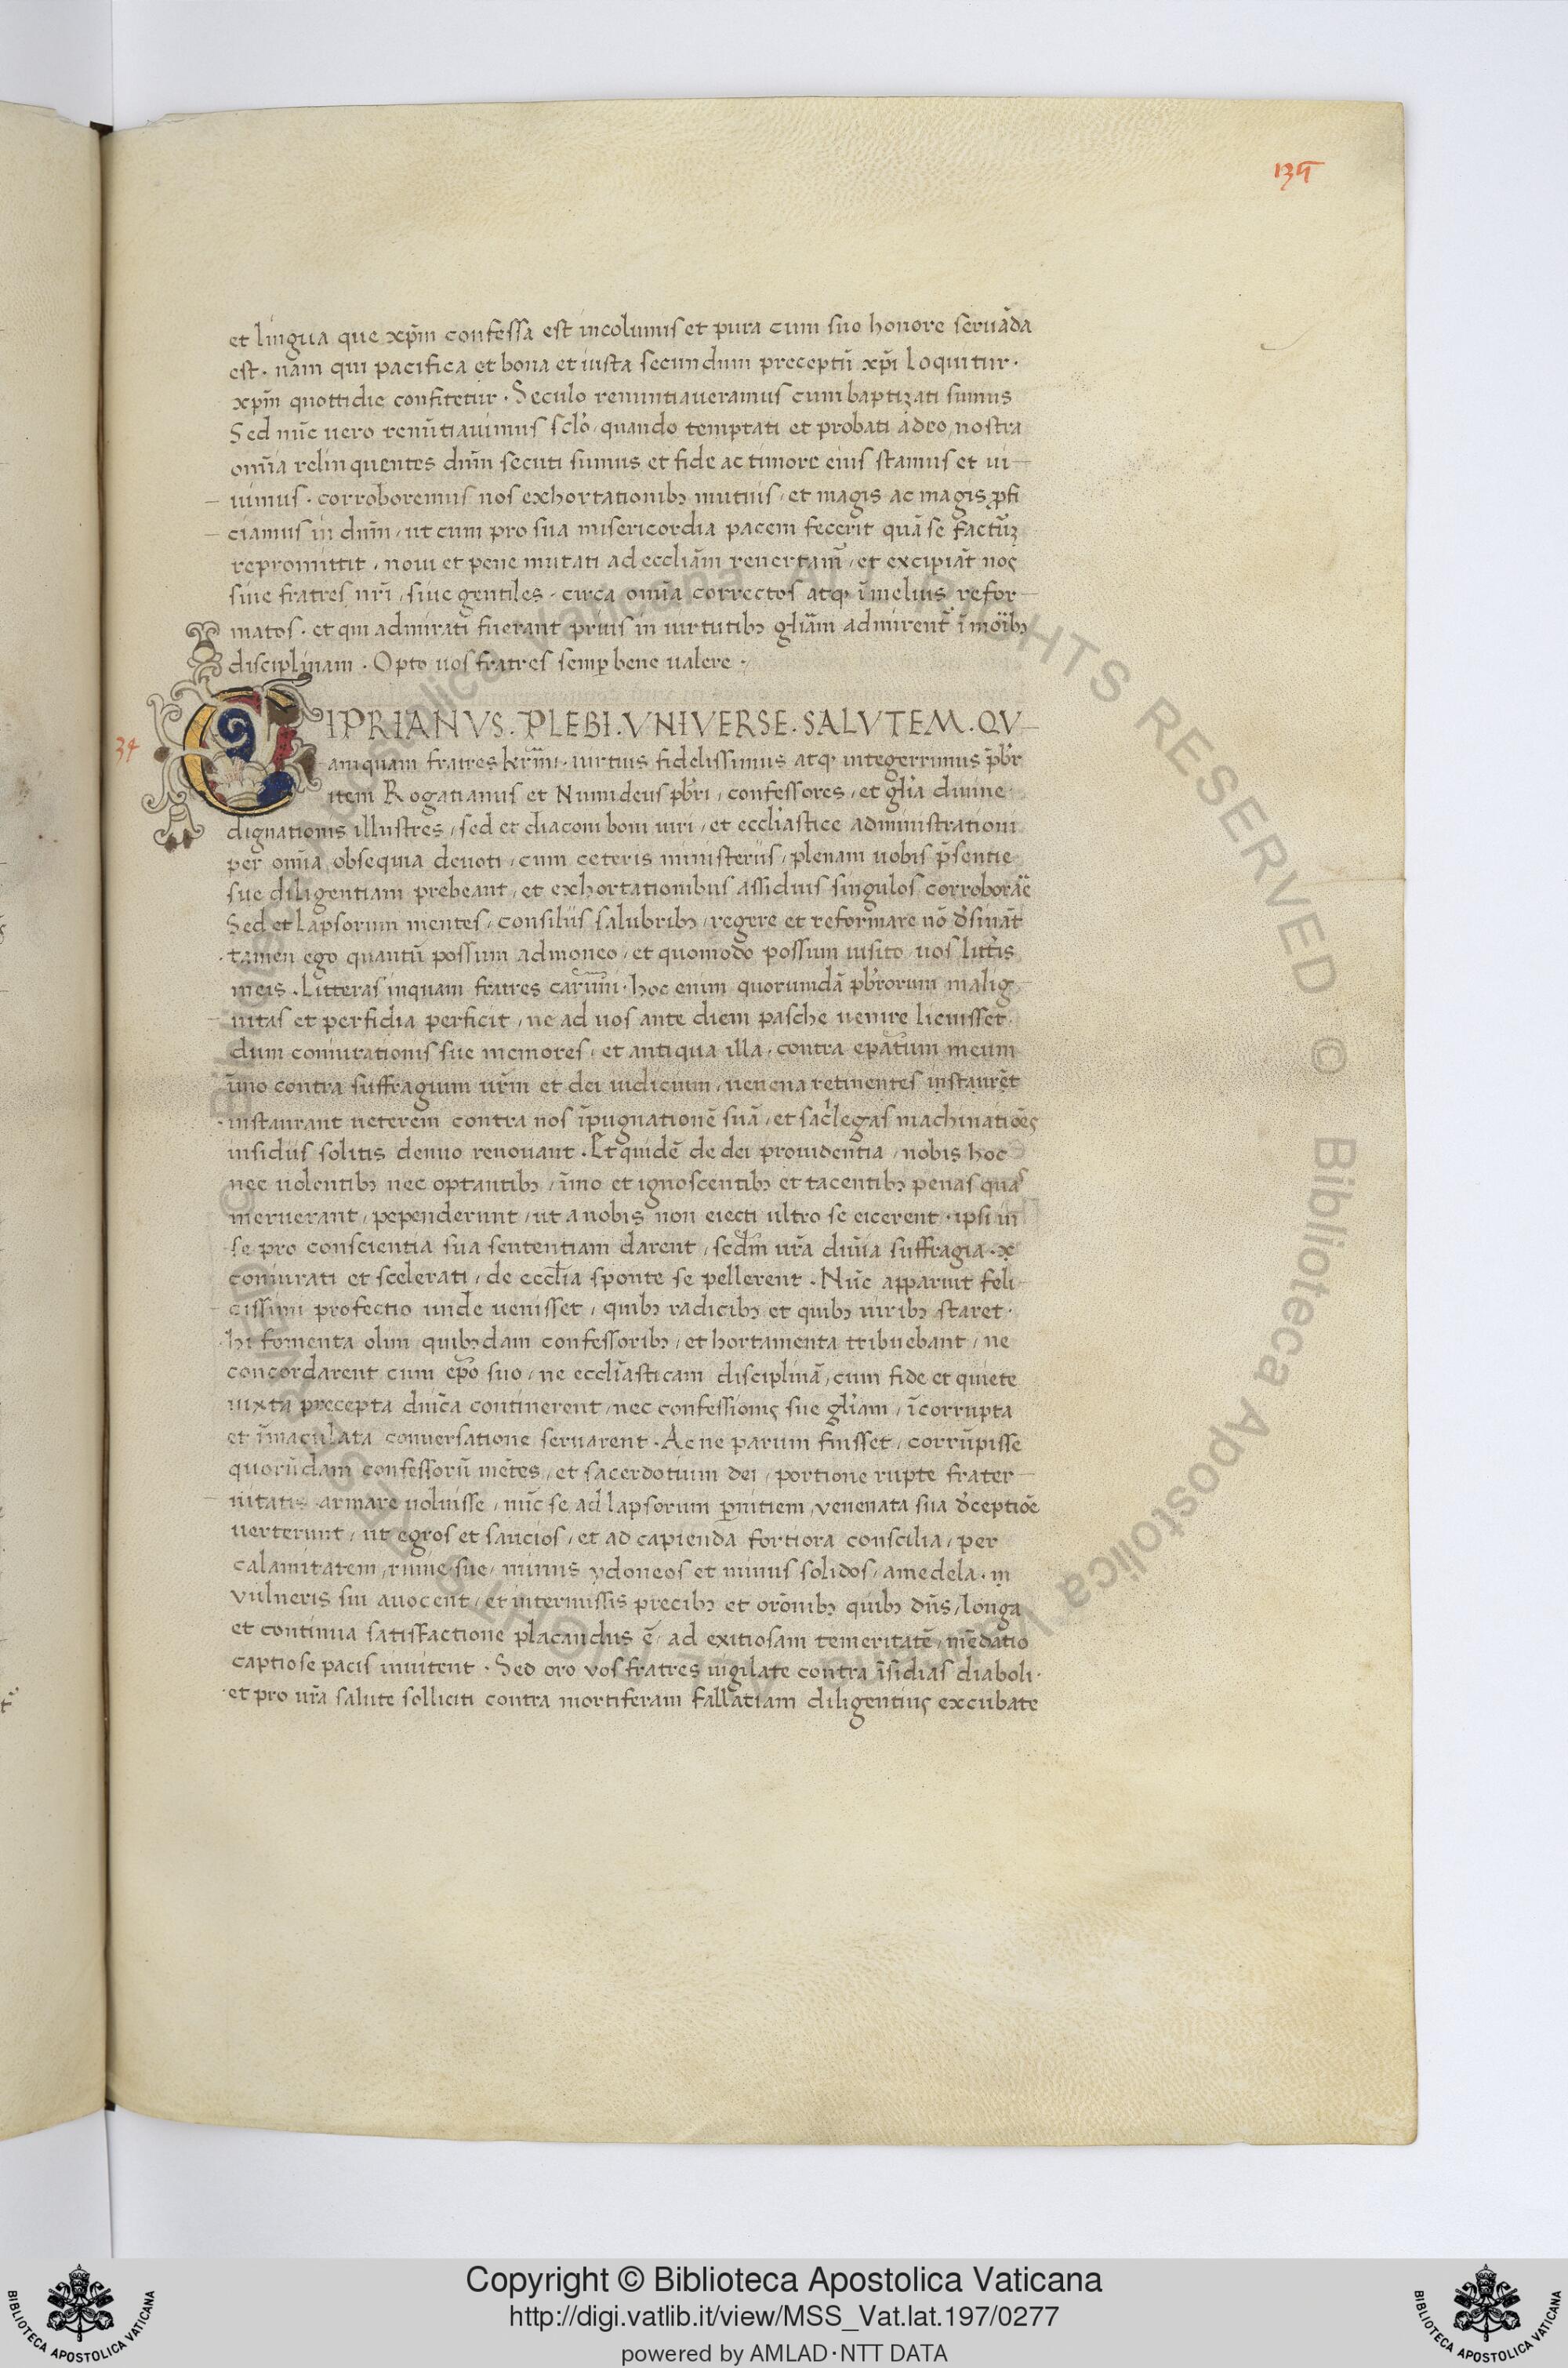 139
et lingua que xp̄m confessa est incolumis et pura cum suo honore seruāda
est. nam qui pacifica et bona et iusta secundum preceptū xp̄i loquitur.
xp̄m quottidie confitetur. Seculo renuntiaueramus cum baptizati sumus
Sed nūc uero renūtiauimus sclo, quando temptati et probati adeo, nostra
om̄ia relinquentes dn̄m secuti sumus et fide ac timore eius stamus et ui
uimus. corroboremus nos exhortationibꝫ mutuis, et magis ac magis ꝓfi
ciamus in dn̄m, ut cum pro sua misericordia pacem fecerit quā se factūꝫ
repromittit, noui et pene mutati ad eccliām reuertam̄, et excipiāt nos
siue fratres nr̄i, siue gentiles. circa om̄ia correctos atq, ī melius refor
matos. et qui admirati fuerant prius in uirtutibꝫ gliām admirent̄ ī moribꝫ
disciplinam. Opto uos fratres semp̲ bene ualere.
34
CIPRIANVS. PLEBI. VNIVERSE. SALVTEM. QV
amquam fratres kr̄mi. uirtius fidelissimus atq, integerrimus p̄br
item Rogatianus et Numideus pb̄ri, confessores, et gl̄ia diuine
dignationis illustres, sed et diaconi boni uiri, et eccl̄iastice administrationi
per om̄ia obsequia deuoti, cum ceteris ministeriis, plenam uobis p̄sentie
sue diligentiam prebeant, et exhortationibus assiduis singulos corroborāe
Sed et lapsorum mentes, consiliis salubribꝫ, regere et reformare nō d̓sināt
tamen ego quantū possum admoneo, et quomodo possum uisito uos litt̄is
meis. Litteras inquam fratres carīmi. hoc enim quorumdā pb̄rorum malig
nitas et perfidia perficit, ne ad uos ante diem pasche uenire licuisset.
dum coniurationis sue memores, et antiqua illa, contra ep̄atum meum
īmo contra suffragium ur̄m et dei iudicium, uenena retinentes instaurēt
instaurant ueterem contra nos īpugnationē suā, et sac̓legas machinatiōes
insidiis solitis denuo renouant. Et quidē de dei prouidentia, nobis hoc
nec uolentibꝫ nec optantibꝫ, īmo et ignoscentibꝫ et tacentibꝫ penas quas
meruerant, pependerunt, ut a nobis non eiecti ultro se eicerent. ipsi in
se pro conscientia sua sententiam darent, scdm̄ ur̄a diuīa suffragia.
coniurati et scelerati, de eccl̄ia sponte se pellerent. Nūc apparuit feli
cissimi profectio unde uenisset, quibꝫ radicibꝫ et quibꝫ uiribꝫ staret.
hi fomenta olim quibꝫdam confessoribꝫ, et hortamenta tribuebant, ne
concordarent cum ep̄o suo, ne eccl̄iasticam disciplinā, cum fide et quiete
iuxta precepta dn̄ica continerent, nec confessionis sue gl̄iam, īcorrupta
et īmaculata conuersatione seruarent. Ac ne parum fuisset, corrūpisse
quorūdam confessorū mētes, et sacerdotium dei, portione rupte frater
nitatis armare uoluisse, nūc se ad lapsorum p̲nitiem, venenata sua d̓ceptiōe
uerterunt, ut egros et saucios, et ad capienda fortiora conscilia, per
calamitatem, ruine sue, minus ydoneos et minus solidos, amedela.
vulneris sui auocent, et intermissis precibꝫ et orōnibꝫ quibꝫ dn̄s, longa
et continua satisfactione placandus ē, ad exitiosam temeritatē, mēdatio
captiose pacis inuitent. Sed oro vos fratres uigilate contra īsidias diaboli.
et pro ur̄a salute solliciti contra mortiferam fallatiam diligentius excubate
© Biblioteca Apostolica Vaticana ALL RIGHTS RESERVED © Biblioteca Apostolica Vaticana ALL RIGHTS RESERVED
Copyright © Biblioteca Apostolica Vaticana
http://digi.vatlib.it/view/MSS_Vat.lat.197/0277
powered by AMLAD·NTT DATA
BIBLIOTECA APOSTOLICA VATICANA
BIBLIOTECA APOSTOLICA VATICANA